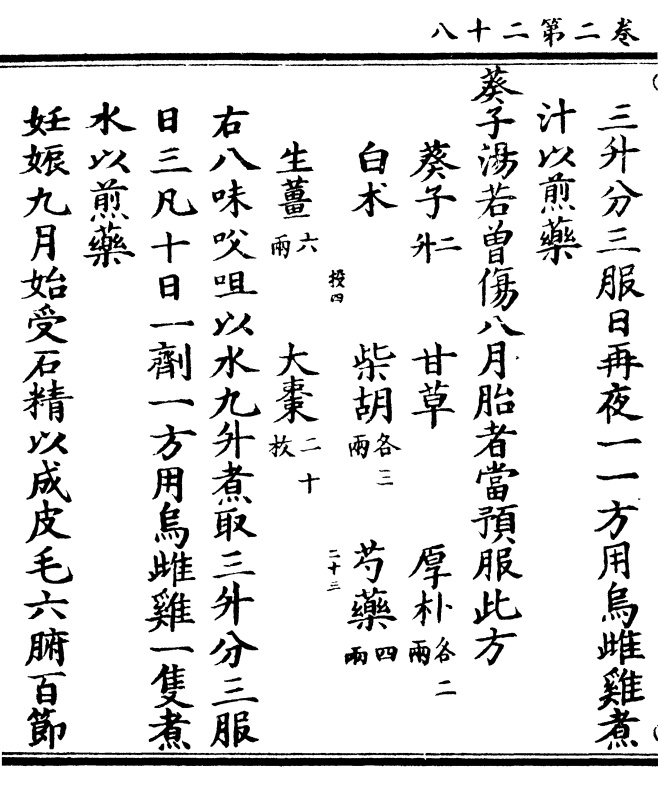 卷二第二十八
三升分三服日再夜一一方用烏雌雞煮
汁以煎藥
葵子湯若曾傷八月胎者當預服此方
葵子二升 甘草 厚朴各二兩
白朮 柴胡各三兩 芍藥四兩
四 二十三
生薑六兩 大棗二十枚
右八味㕮咀以水九升煮取三升分三服
日三凡十日一劑一方用烏雌雞一隻煮
水以煎藥
妊娠九月始受石精以成皮毛六腑百節